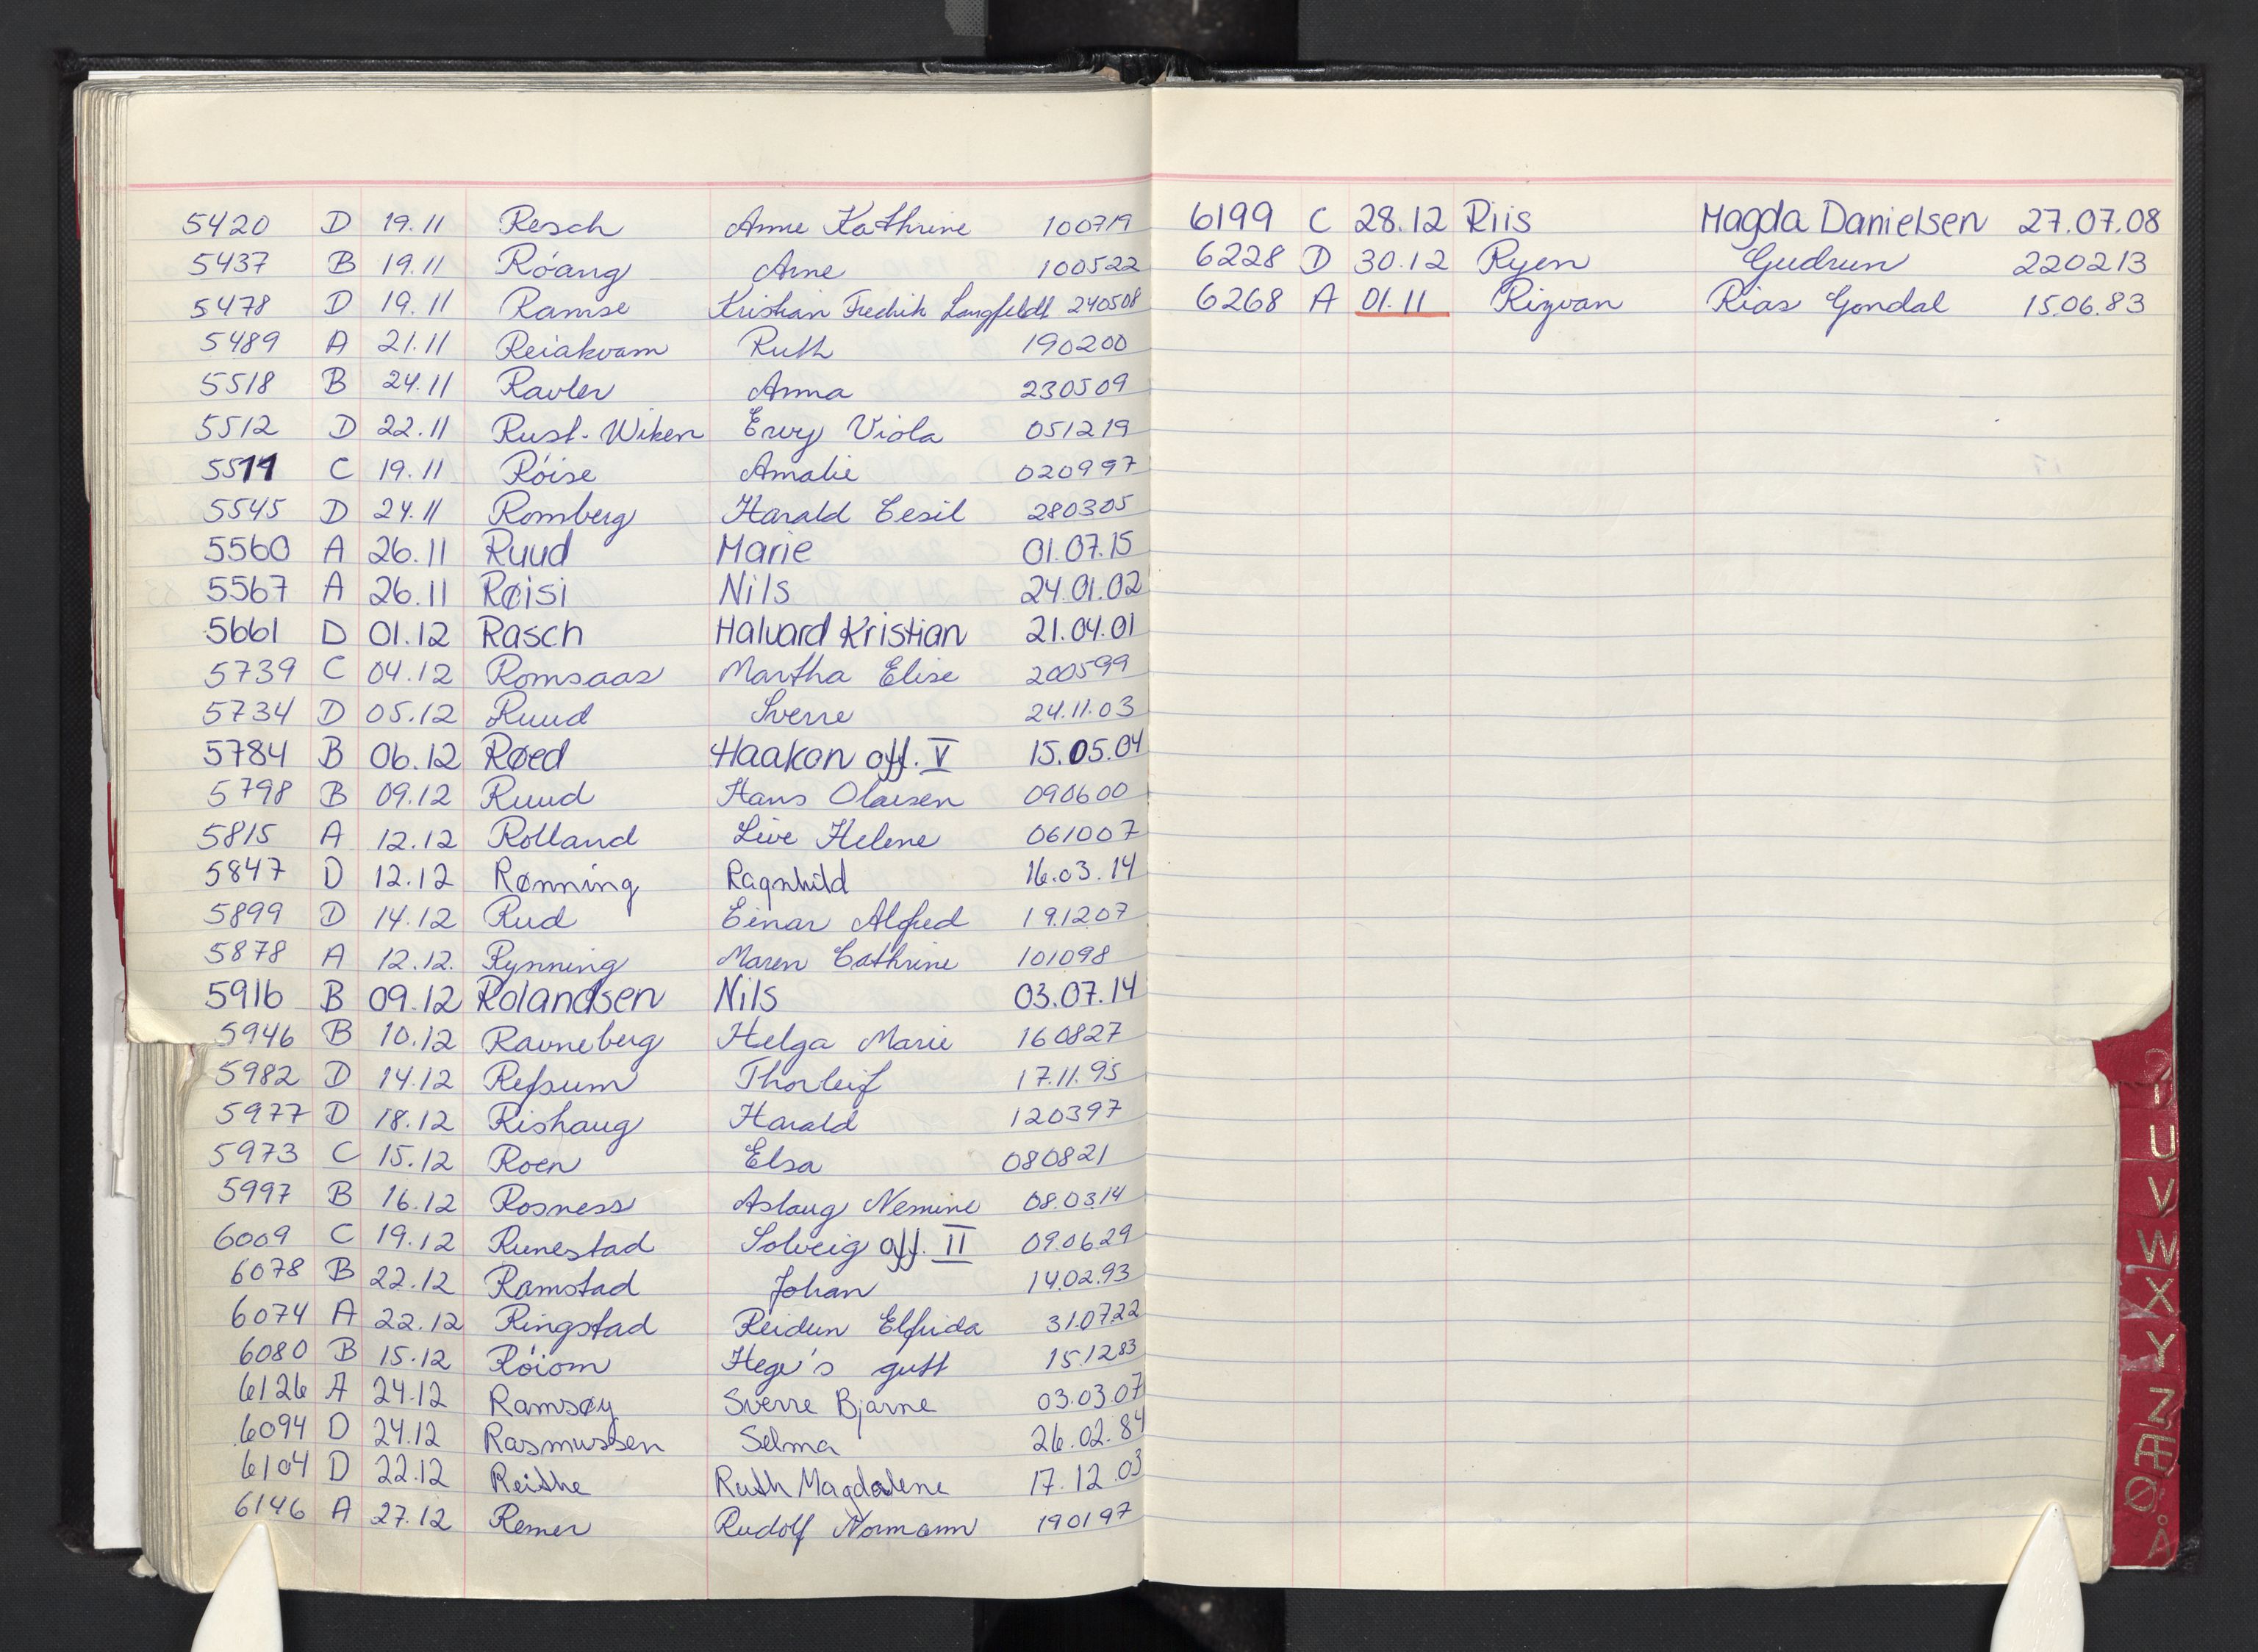 5420 D 19.11 Resch Anne Kathrine 100719
5437 B 19.11 Róang Arne 100522
5478 D 19.11 Ramse Kristian Fredrik Langfeldt 240508
5489 A 21.11 Reiakvam Ruth 190200
5518 B 24.11 Ravler Anna 230509
5512 D 22.11 Rust-Wiken Envy Viola 051219
5511 C 19.11 Róise Amalie 020997
5545 D 24.11 Romberg Harald Cesil 280305
5560 A 26.11 Ruud Marie 01.07.15
5567 A 26.11 Røisi Nils 24.01.02
5661 D 01.12 Rasch Halvard Kristian 21.04.01
5739 C 04.12 Romsaas Martha Elise 200599
5734 D 05.12 Ruud Sverre 24.11.03
5784 B 06.12 Røed Haakon off. V 15.05.04
5798 B 09.12 Ruud Hans Olaisen 090600
5815 A 12.12 Rolland Live Helene 061007
5847 D 12.12 Rønning Ragnhild 16.03.14
5899 D 14.12 Rud Einar Alfred 191207
5878 A 12.12. Rynning Maren Cathrine 101098
5916 B 09.12 Rolandsen Nils 03.07.14
5946 B 10.12 Ravneberg Helga Marie 160827
5982 D 14.12 Refsum Thorleif 17.11.95
5977 D 18.12 Rishaug Harald 120397
5973 C 15.12 Roen Elsa 080821
5997 B 16.12 Rosness Aslaug Nemine 08.03.14
6009 C 19.12 Runestad Solveig off. II 09.06.29
6078 B 22.12 Ramstad Johan 14.02.93
6074 A 22.12 Ringstad Reidun Elfrida 31.07.22
6080 B 15.12 Róiom Hege's gutt 15.12.83
6126 A 24.12 Ramsøy Sverre Bjarne 03.03.07
6094 D 24.12 Rasmussen Selma 26.02.84
6104 D 22.12 Reithe Ruth Magdalene 17.12.03
6146 A 27.12 Remer Rudolf Normann 190197
6199 C 28.12 Riis Magda Danielsen 27.07.08
6228 D 30.12 Ryen Gudrun 220213
6268 A 01.11 Rizvan Rias Gondal 15.06.83
U
V
W
X
Y
Z
Æ
Ø
Å